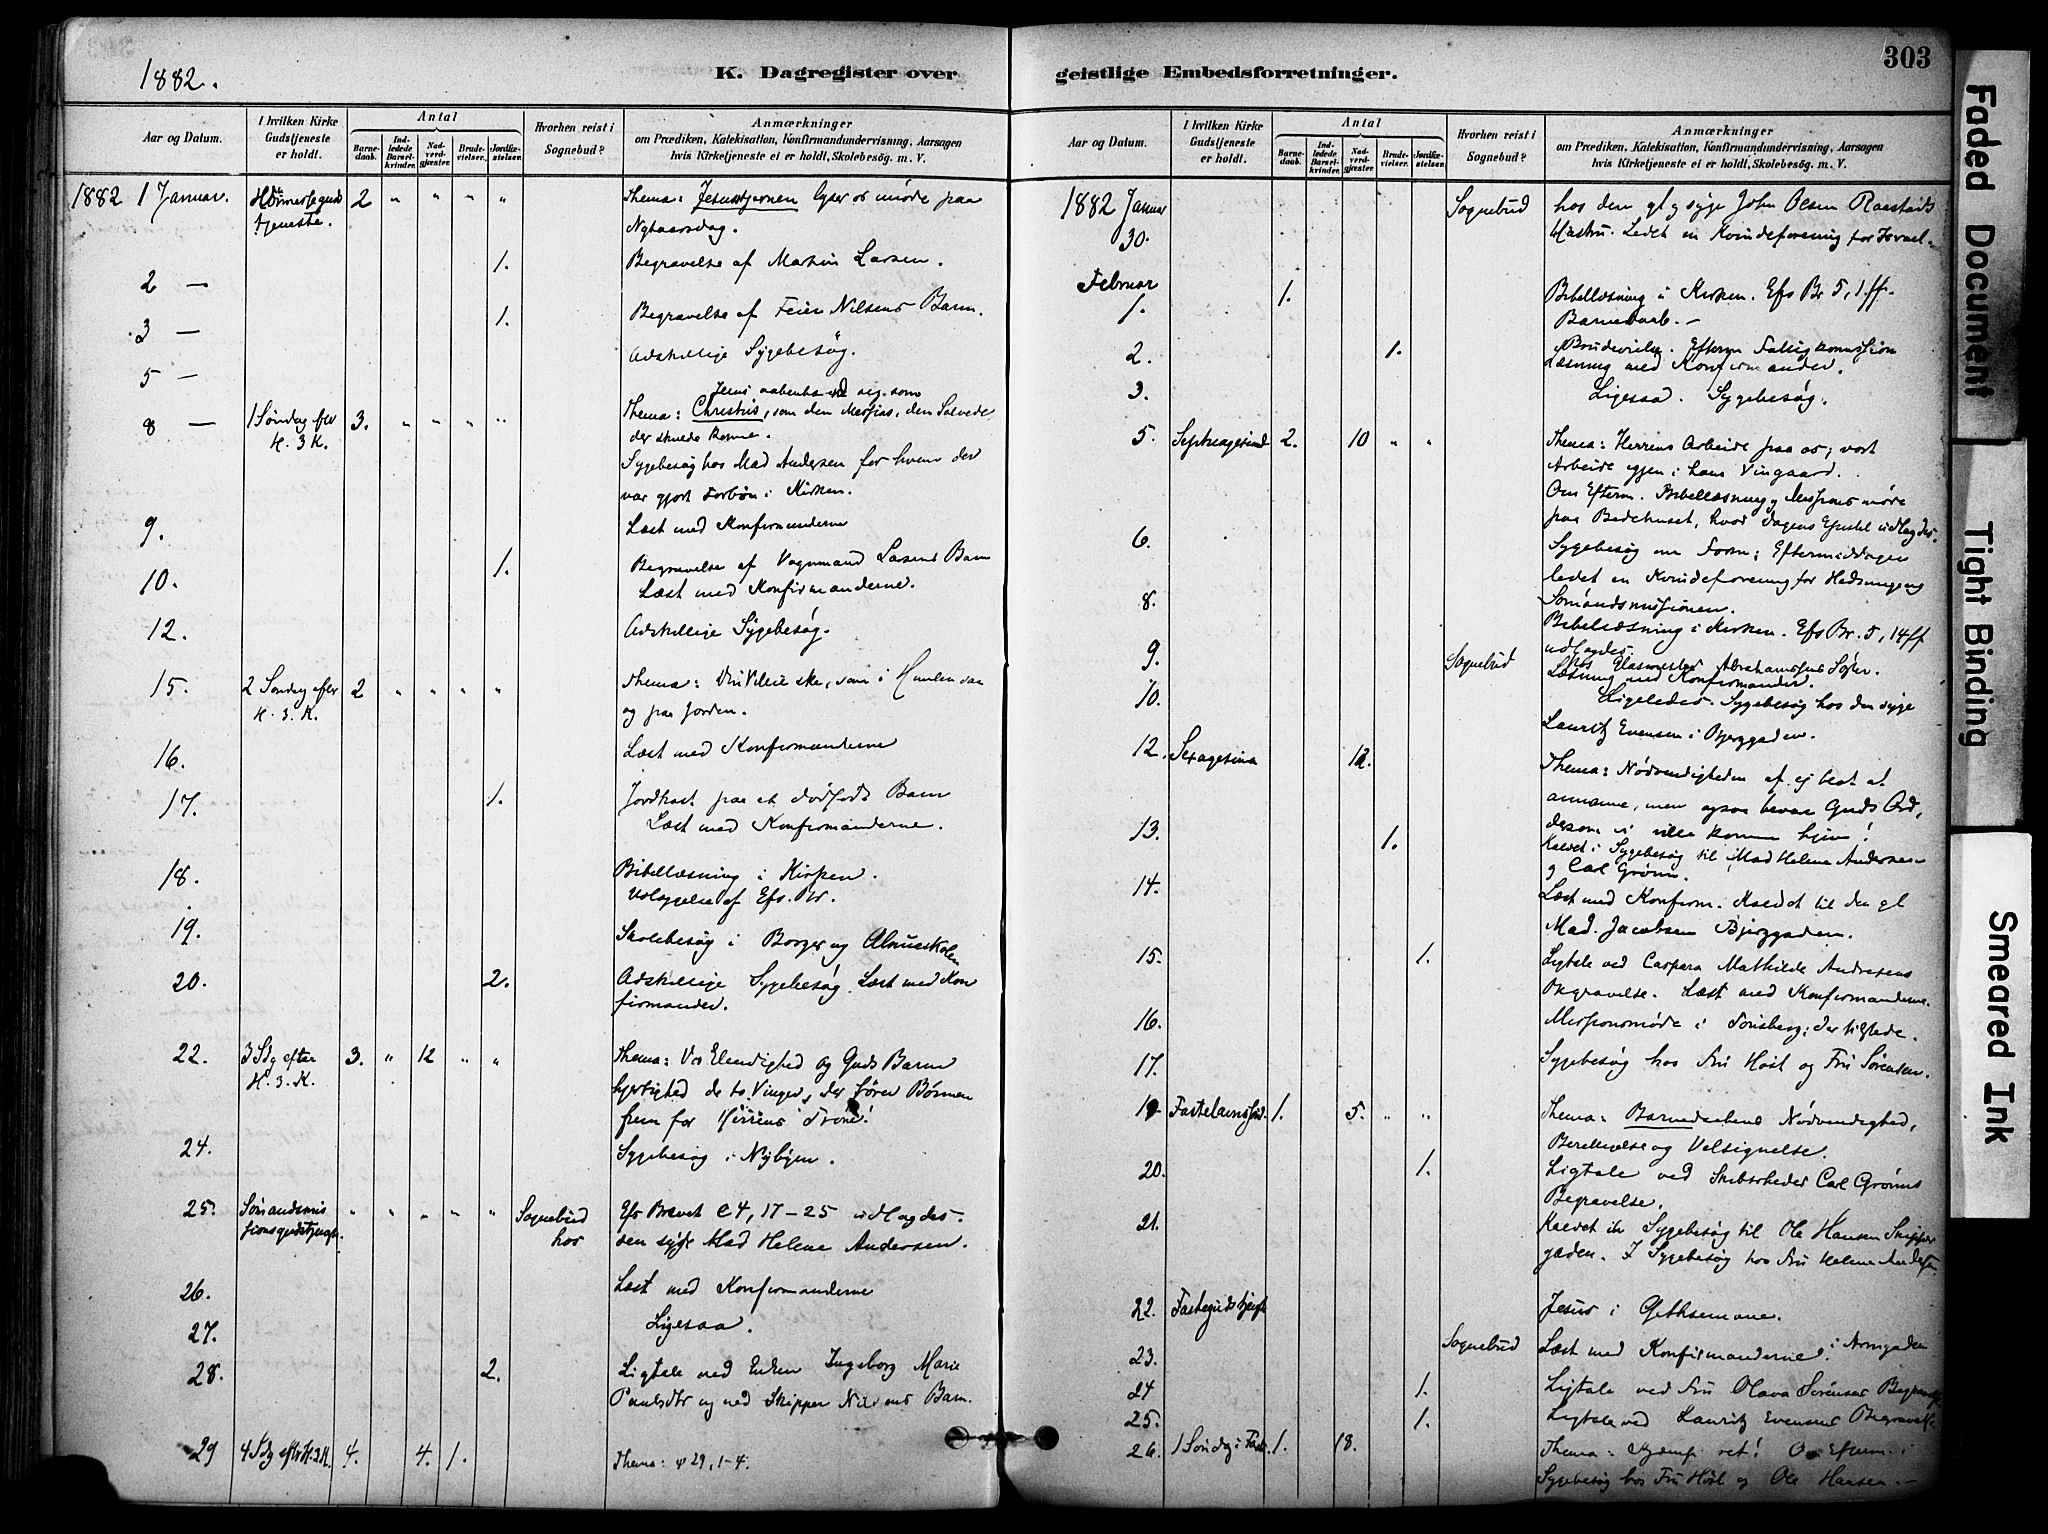 1882.
K. Dagregister over
Aar og Datum.
I hvilken Kirke Gudstjeneste er holdt.
Antal
Barnedaab.
Indledede Barselkvinder.
Nadverdgjester.
Brudevielser.
Jordfæstelser.
Hvorhen reist i Sognebud?
Anmærkninger
om Prædiken, Katekisation, Konfirmandundervisning, Aarsagen
hvis Kirketjeneste ei er holdt, Skolebesög. m. V.
1882 1 Januar. Høimessegudstjeneste. 2 " " " " Thema: Jesustjernen lyser os imøde paa
Nytaarsdag.
2 — 1. Begravelse af Martin Larsen.
3 — 1. Begravelse af Nilsens Barn.
5 — Adskillige Sygebesøg.
8 — 1 Søndag efter H. 3 K. 3. " " " " Jesus aabenba seg som
Thema: Christus, som den Messias, den Salvede
der skulde komme.
Sygebesøg hos Mad Andersen for hvem der
var gjort Forbøn i Kirken.
9. Læst med Konfirmanderne
10. 1. Begravelse af Vognmand Larsens Barn
Læst med Konfirmanderne.
12. Adskillige Sygebesøg.
15. 2 Søndag efter H. 3. K. 2 " " " " Thema: Din Villie ske, som i Himlen saa
og paa Jorden.
16. Læst med Konfirmanderne
17. 1. Jordkast paa et dødfødt Barn
Læst med Konfirmanderne.
18. Bibellæsning i Kirken.
Udlæggelse af Efs. Br.
19. Skolebesøg i Borger og Almueskolen
20. 2. Adskillige Sygebesøg. Læst med Kon
firmander.
22. 3 Sdg efter H. 3. K. 3. " 12 " " Thema: Vor Elendighed og Guds Barm
hjertighed de to Vinger, der fører Bønnen
frem for Herrens Trone!
24. Sygebesøg i Nybyen.
25. Sømandsmis
sionsgudstjeneste. " " " " " Sognebud hos Efs Brevet C 4, 17-25 udlagdes.
den syge Mad Helene Andersen.
26. Læst med Konfirmanderne
27. Ligesaa.
28. 2. Ligtale ved Enken Ingeborg Marie
Paulsdtr og ved Skipper Barn.
29 4 Sdg efter H. 3 K. 4. 4. 1. Thema: ψ 29, 1-4.
geistlige Embedsforretninger.
303
Aar og Datum.
I hvilken Kirke Gudstjeneste er holdt.
Antal
Barnedaab.
Indledede Barselkvinder.
Nadverdgjester.
Brudevielser.
Jordfæstelser.
Hvorhen reist i Sognebud?
Anmærkninger
om Prædiken, Katekisation, Konfirmandundervisning, Aarsagen
hvis Kirketjeneste ei er holdt, Skolebesög. m. V.
1882 Januar
30. Sognebud hos den gl og syge John Olsen
Hustru. Ledet en Kvindeforening for Israel.
Februar
1. 1. Bibellæsning i Kirken. Efs Br 5, 1 ff.
Barnedaab. —
2. 1. Brudevielse. Efterm Fattigkommission
Læsning med Konfirmander.
3. Ligesaa. Sygebesøg.
5. Septuagesima 2. 10 " " Thema: Herrens Arbeide paa os; vort
Arbeide igjen i hans Vingaard.
Om Efterm. Bibellæsning og Missionsmøde
paa Bedehuset, hvor Dagens Epistel udlagdes.
6. Sygebesøg om Form; Eftermiddagen
ledet en Kvindeforening for Hedning og
Sømandsmissionen.
8. Bibellæsning i Kirken. Efs Br. 5, 14 ff
udlagdes.
9. Sognebud hos Glasmester Abrahamsens
Læsning med Konfirmander.
10. Ligeledes. Sygebesøg hos den syge
Lauritz Evensen i Bjerggaden.
12. Sexagesima 12. Thema: Nødvendigheden af ej blot at
annamme, men ogsaa bevare Guds Ord,
dersom vi ville komme hjem!
13. 1. Kaldet i Sygebesøg til Mad Helene Andersen
og Carl Grønn.
14. Læst med Konfirm. Kaldet til den gl
Mad. Jacobsen Bjerggaden.
15. 1. Ligtale ved Caspara Mathilde Andresens
Begravelse. Læst med Konfirmanderne.
16. Missionsmøde i Tønsberg; der tilstede.
17. Sygebesøg hos Fru Høst og Fru Sørensen.
19. Fastelavnssønd. 1. 5. " " Thema: Barnedaabens Nødvendighed,
Berettigelse og Velsignelse.
20. 1. Ligtale ved Skibsrheder Carl Grønns
Begravelse.
21. Kaldet i Sygebesøg til Ole Hansen Skipper
gaden. I Sygebesøg hos Fru Helene Andersen
22. Fastegudstjeneste Jesus i Gethsemane.
23. Sognebud i
Læst med Konfirmanderne.
24 1. Ligtale ved Fru Olava Sørensens Begravelse
25. 1. Ligtale ved Lauritz Evensens Begravelse
26. 1 Søndag i Faste. 1. 18. Thema: Kjæmp ret! Om Efterm. i
Sygebesøg hos Fru Høst og Ole Hansen. —
Faded Document
Tight Binding
Smeared Ink